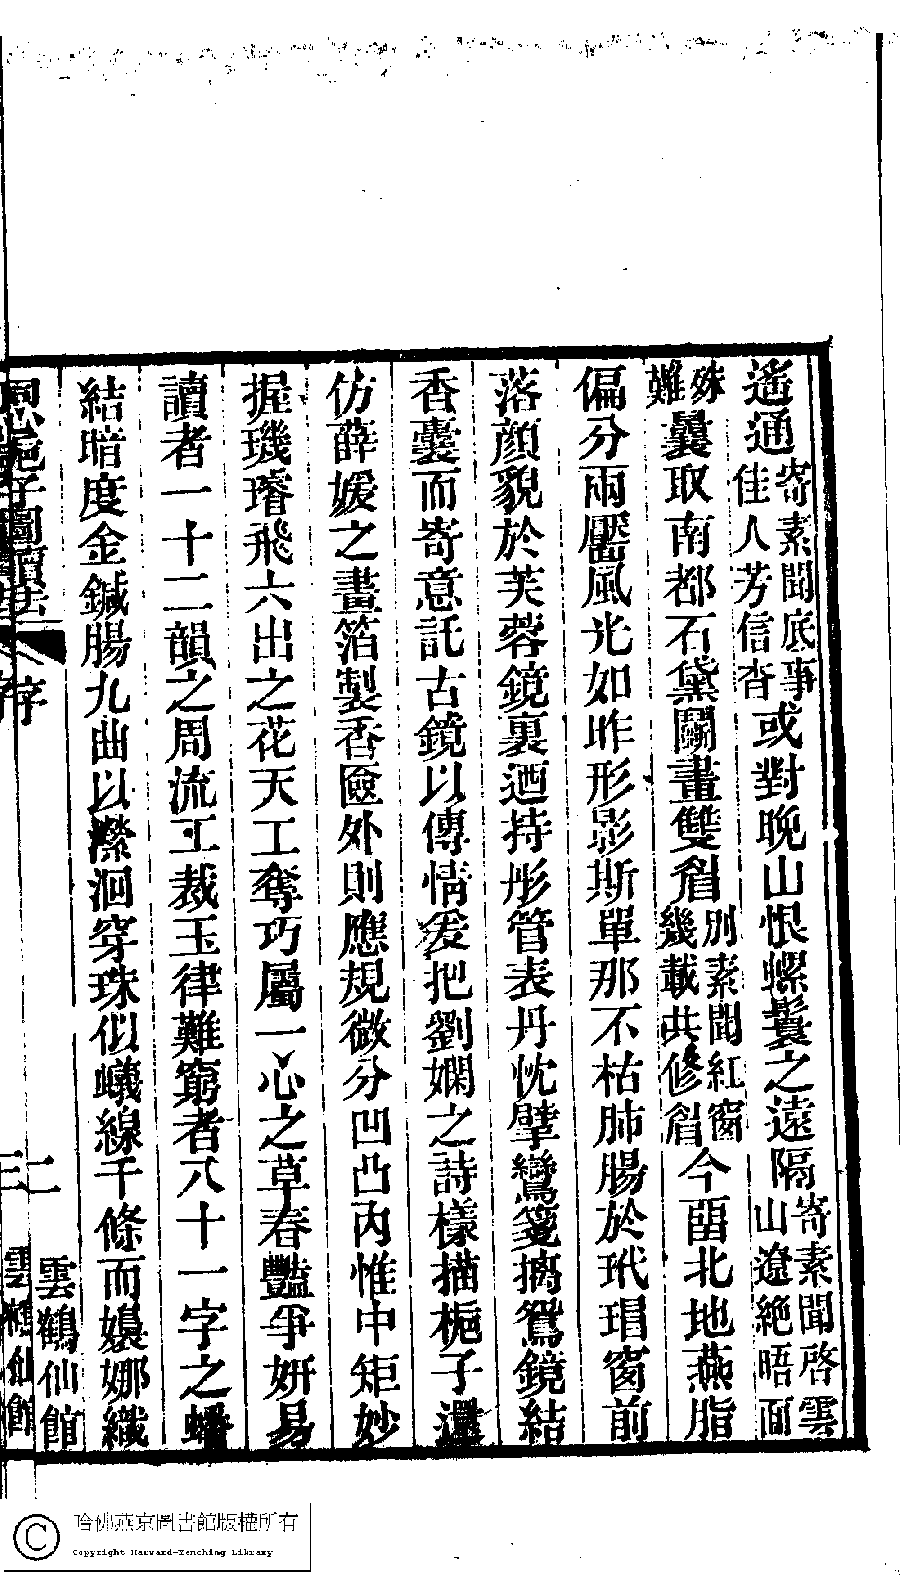 遙通寄素聞底事佳人芳信杳或對晚山恨螺鬟之遠隔寄素聞啓雲山遼絶晤面
殊難曩取南都石黛鬭畫雙眉別素聞紅窗幾載共修眉今畱北地燕脂
偏分兩靨風光如昨形影斯單那不枯肺腸於玳瑁窗前
落顏貌於芙蓉鏡裏迺持彤管表丹忱擘鸞箋摛鴛鏡結
香囊而寄意託古鏡以傳情爰把劉嫻之詩樣描梔子還
仿薛媛之畫箔製香匳外則應規微分凹凸內惟中矩妙
握璣璿飛六出之花天工奪巧屬一心之草春豔爭妍易
讀者一十二韻之周流工裁玉律難窮者八十一字之蟠
結暗度金鍼腸九曲以縈洄穿珠似蟻線千條而嬝娜織
同心梔子圖讀法 序 二 雲鶴仙館
哈佛燕京圖書館版權所有
Copyright Harvard-Yenching Library